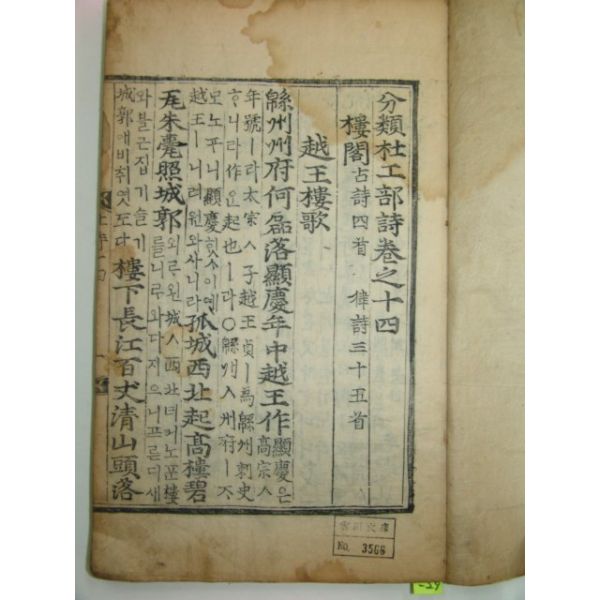 分類杜工部詩卷之十四
樓閣 古詩四首 律詩三十五首
越王樓歌
緜州州府何磊落顯慶年中越王作 顯慶은 高宗ㅅ
年號ㅣ라太宗ㅅ子越王貞ㅣ爲緜州刺史
ᄒᆞ니라作은起也ㅣ라○緜州ㅅ州府ㅣᄌᆞ
모노ᄑᆞ니顯慶ㅅᄒᆡᆺᄉᆞ이예
越王ㅣ 孤城西北起高樓碧
瓦朱甍照城郭 외ᄅᆞ왼城ㅅ西北녀긔노ᄑᆞᆫ樓
ᄅᆞᆯ니ᄅᆞ와다지으니프른디새
와블근집기슬기
城郭애비취엿도다 樓下長江百丈清山頭落
文庫
No. 3566
-29